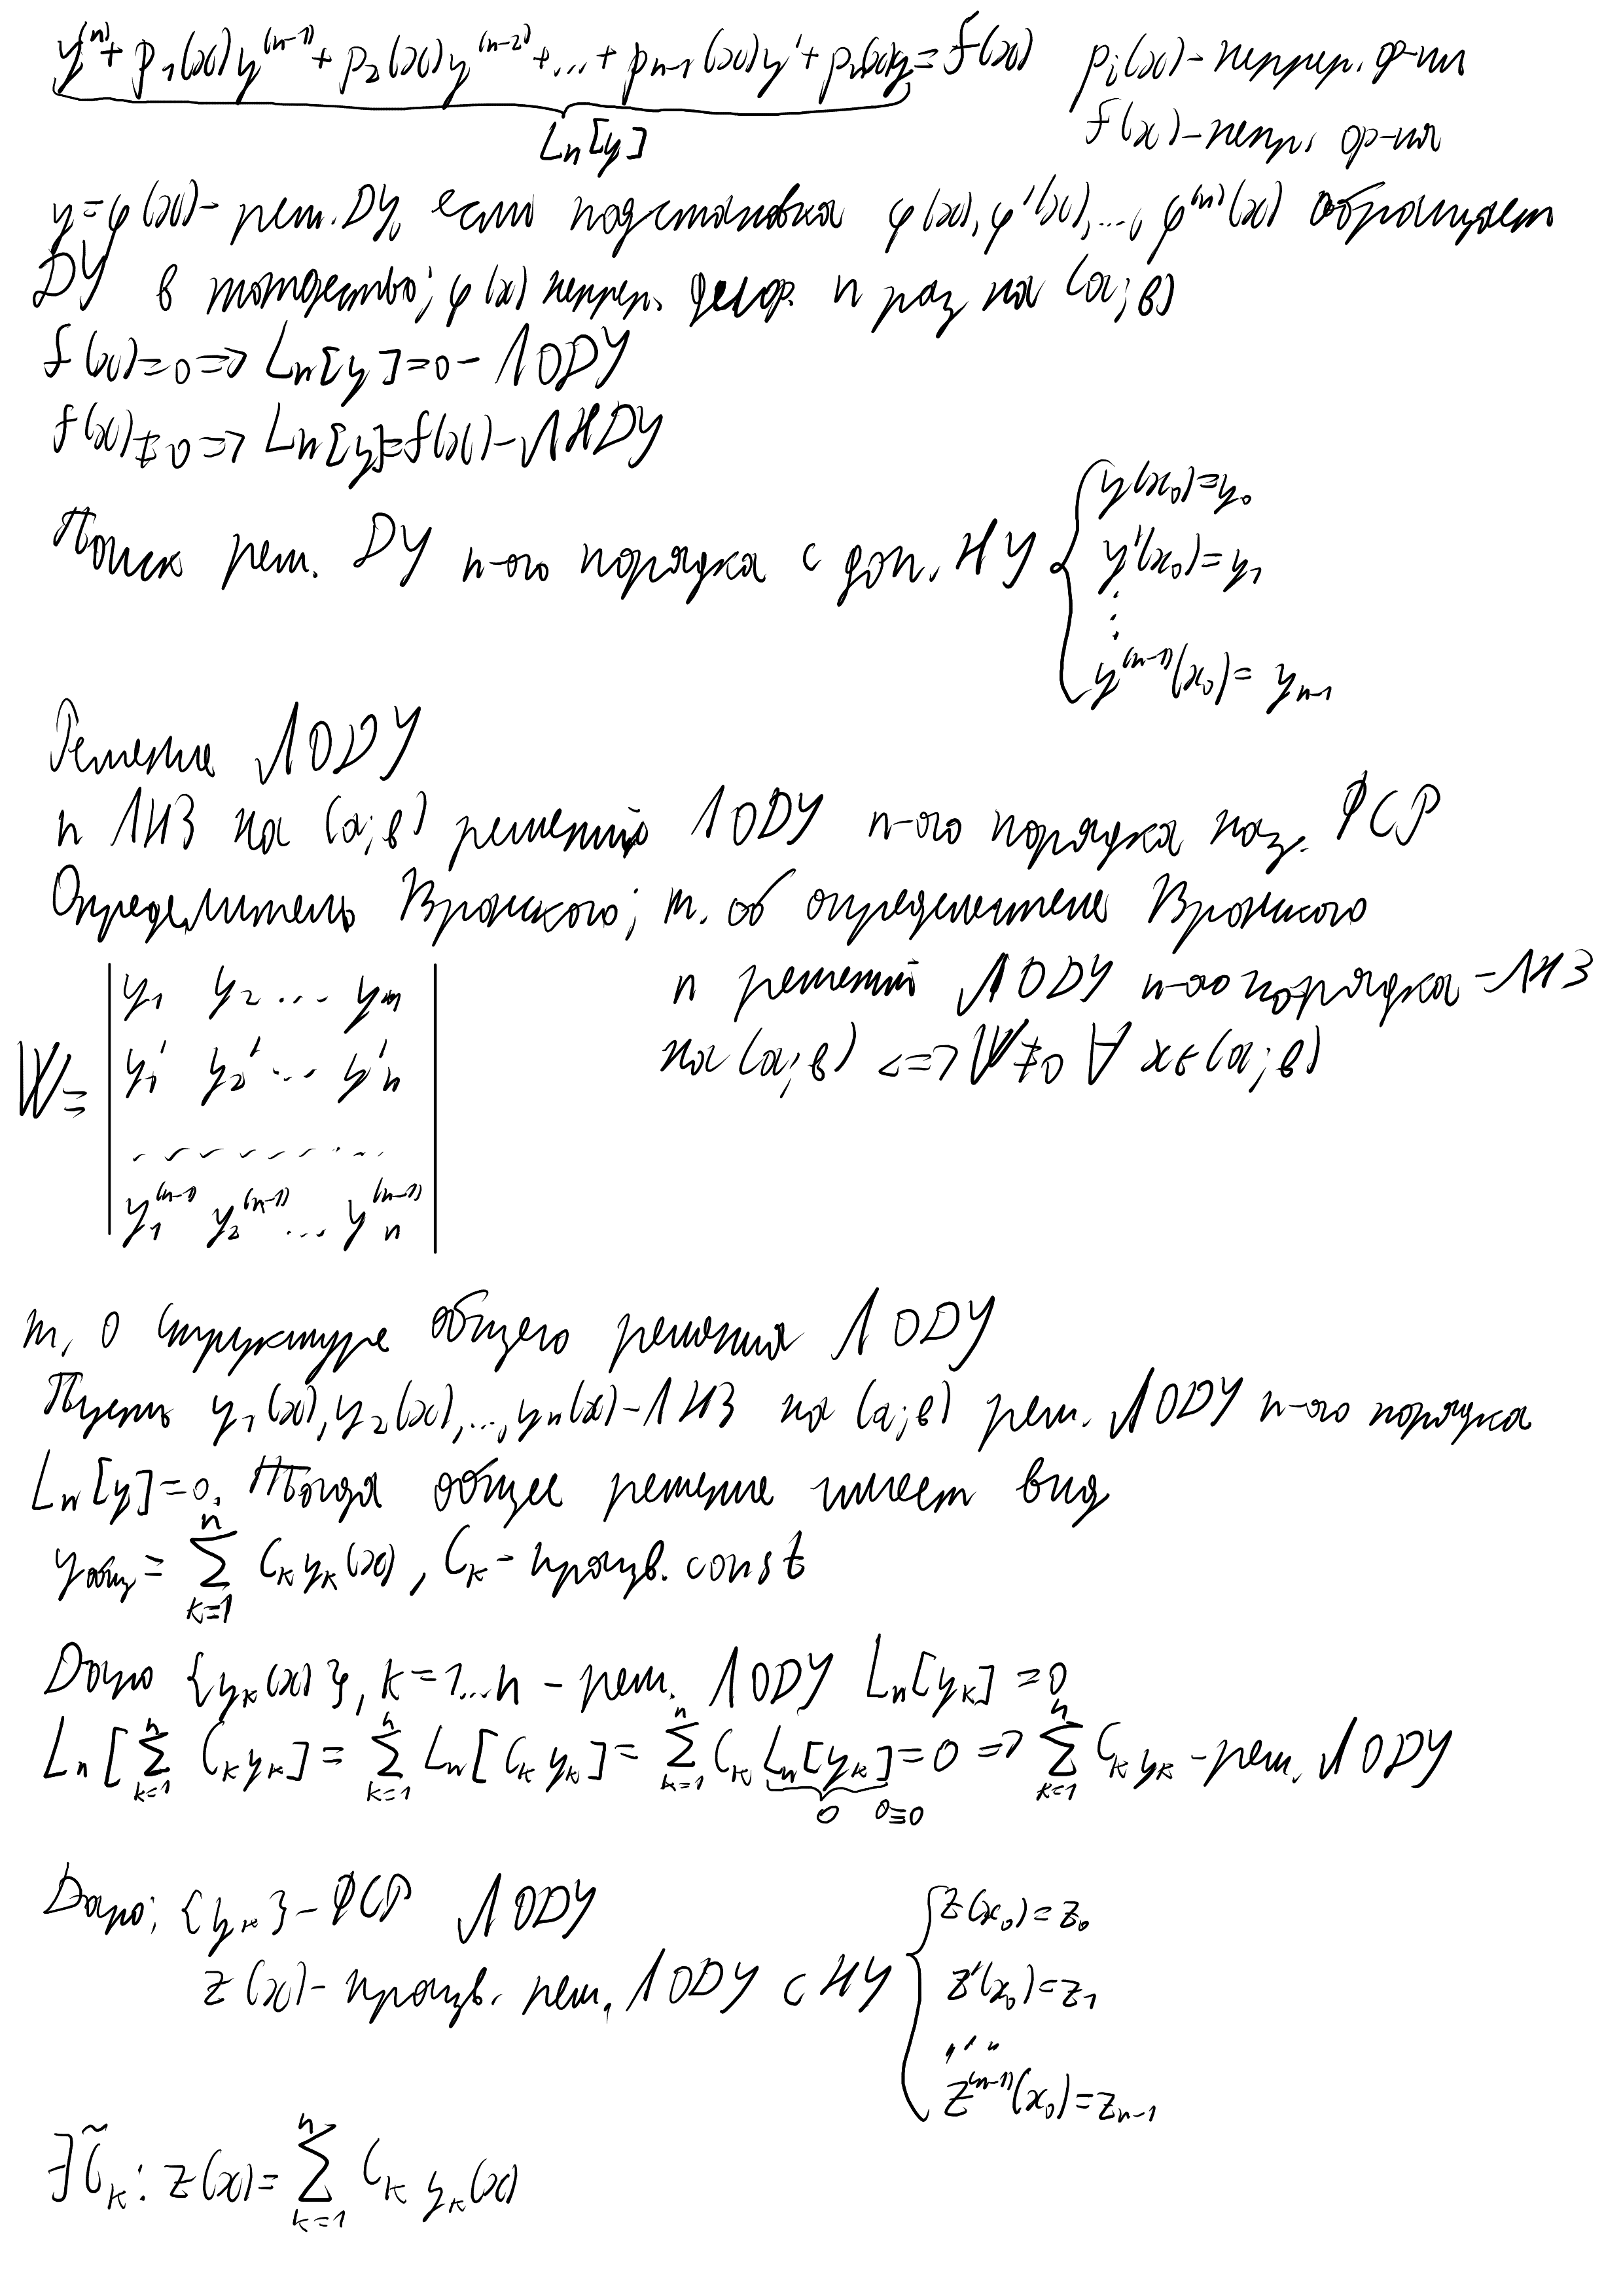 y⁽ⁿ⁾ + p₁(x)y⁽ⁿ⁻¹⁾ + p₂(x)y⁽ⁿ⁻²⁾ + ... + pₙ₋₁(x)y' + pₙ(x)y = f(x) pᵢ(x) - непрер. ф-ии
Lₙ[y] f(x) - непр. ф-ия
y = φ(x) - реш. ДУ, если подстановка φ(x), φ'(x), ..., φ⁽ⁿ⁾(x) обращает
ДУ в тождество; φ(x) непрер. диф. n раз на (a; b)
f(x) = 0 => Lₙ[y] = 0 - ЛОДУ
f(x) ≠ 0 => Lₙ[y] = f(x) - ЛНДУ
Поиск реш. ДУ n-ого порядка с доп. НУ { y(x₀) = y₀
y'(x₀) = y₁
⋮
y⁽ⁿ⁻¹⁾(x₀) = yₙ₋₁
Решение ЛОДУ
n ЛНЗ на (a; b) решений ЛОДУ n-ого порядка наз. ФСР
Определитель Вронского; т. об определителе Вронского
W = | y₁ y₂ ... yₙ |
| y₁' y₂' ... y'ₙ |
| . . . . . . . . |
| y₁⁽ⁿ⁻¹⁾ y₂⁽ⁿ⁻¹⁾ ... yₙ⁽ⁿ⁻¹⁾ |
n решений ЛОДУ n-ого порядка - ЛНЗ
на (a; b) <=> W ≠ 0 ∀ x ∈ (a; b)
т. о структуре общего решения ЛОДУ
Пусть y₁(x), y₂(x), ..., yₙ(x) - ЛНЗ на (a; b) реш. ЛОДУ n-ого порядка
Lₙ[y] = 0. Тогда общее решение имеет вид
y общ = ∑ₖ₌₁ⁿ Cₖ yₖ(x), Cₖ - произв. const
Дано {yₖ(x)}, k = 1...n - реш. ЛОДУ Lₙ[yₖ] = 0
Lₙ[∑ₖ₌₁ⁿ Cₖ yₖ] = ∑ₖ₌₁ⁿ Lₙ[Cₖ yₖ] = ∑ₖ₌₁ⁿ Cₖ Lₙ[yₖ] = 0 => ∑ₖ₌₁ⁿ Cₖ yₖ - реш. ЛОДУ
0 0≡0
Дано: {yₖ} - ФСР ЛОДУ
z(x) - произв. реш. ЛОДУ с НУ { z(x₀) = z₀
z'(x₀) = z₁
...
z⁽ⁿ⁻¹⁾(x₀) = zₙ₋₁
∃ C̃ₖ: z(x) = ∑ₖ₌₁ⁿ Cₖ yₖ(x)